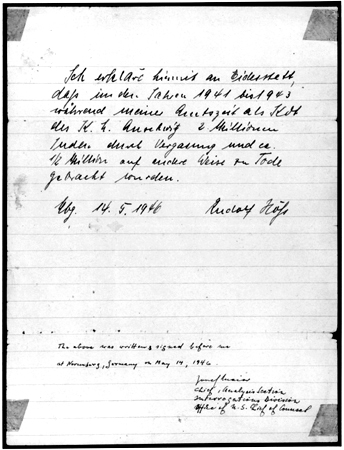 Ich erkläre hiermit an Eidesstatt,
daß in den Jahren 1941 bis 1943
während meiner Amtszeit als Kdt
des K. L. Auschwitz 2 Millionen
Juden durch Vergasung und ca.
1/2 Million auf andere Weise zu Tode
gebracht wurden.
Nbg. 14. 5. 1946 Rudolf Höß
The above was written & signed before me
at Nuremberg, Germany on May 14, 1946.
Chief, Analysis Section
Interrogations Division
Office of U.S. Chief of Counsel